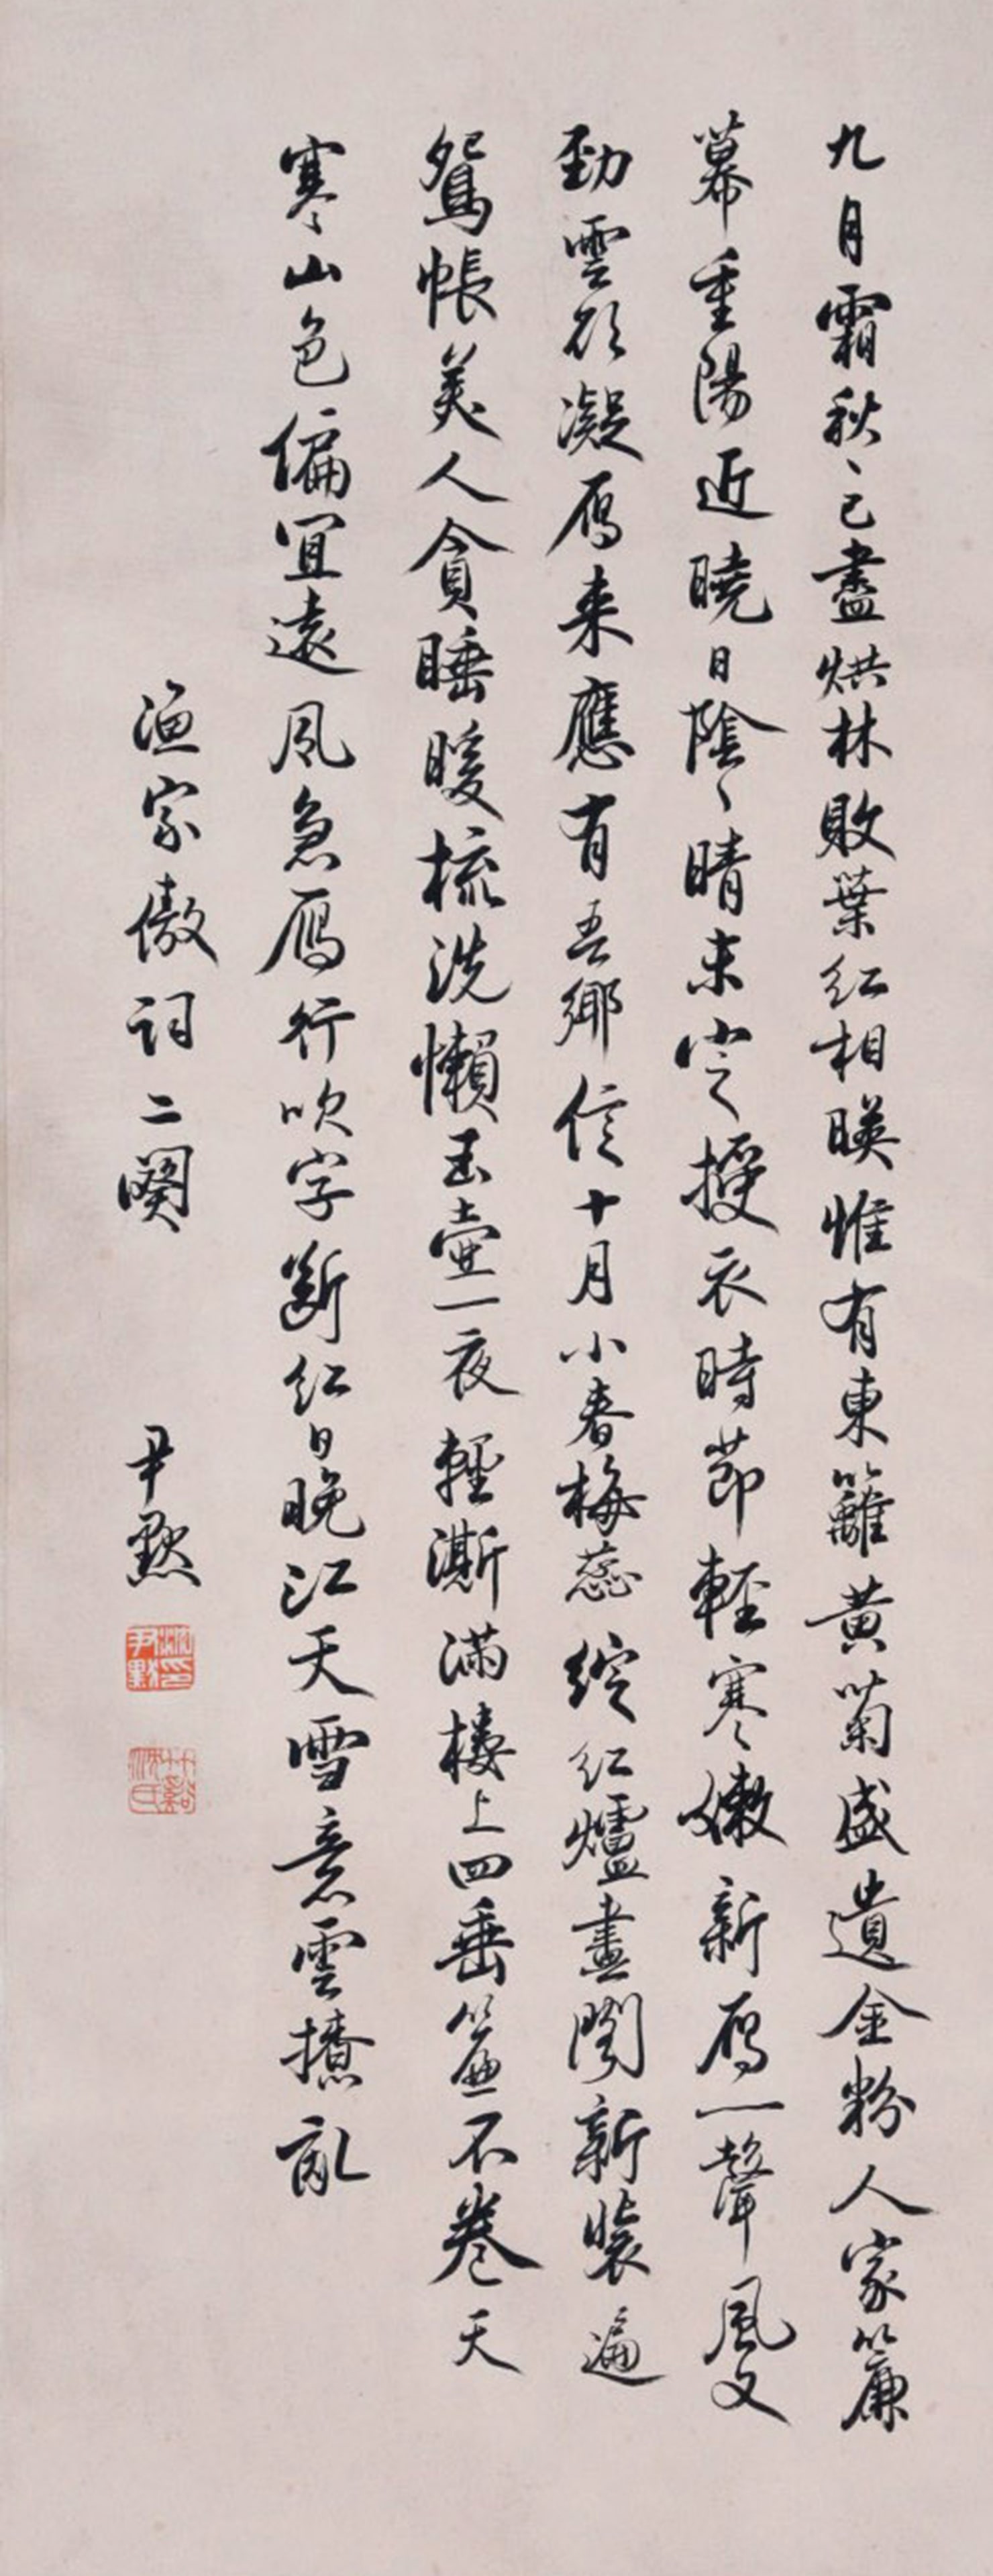 九月霜秋〻已盡烘林敗葉紅相暎惟有東籬黄菊盛遺金粉人家簾
幕重陽近曉日陰〻晴未定授衣時節輕寒嫩新鴈一聲風又
勁雲欲凝鴈来應有吾鄉信十月小春梅蕊綻紅爐畫閣新裝遍
鴛帳美人貪睡暖梳洗懶玉壺一夜輕澌滿樓上四垂簾不卷天
寒山色偏宜遠風急鴈行吹字斷紅日晚江天雪意雲撩亂
漁家傲詞二闋 尹默
沈尹默印
竹谿沈氏